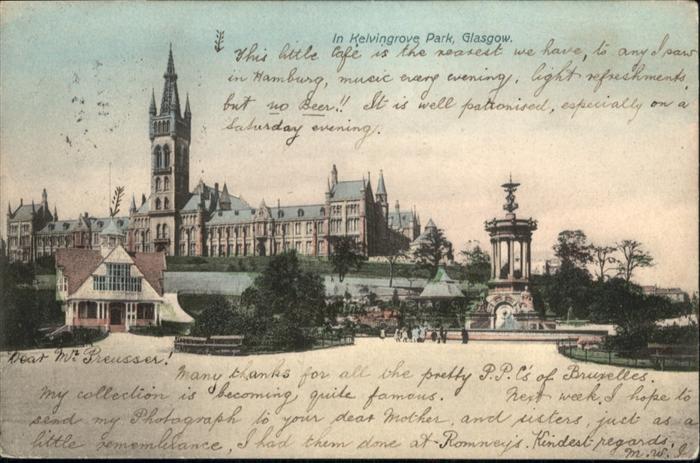 In Kelvingrove Park, Glasgow.
This little Café is the nearest we have, to any I saw
in Hamburg, music every evening, light refreshments,
but no Beer!! It is well patronised, especially on a
Saturday evening.
Dear Mr Preusser!
Many thanks for all the pretty P.P.C's of Bruxelles.
My collection is becoming quite famous. Next week, I hope to
send my Photograph to your dear Mother, and sisters, just as a
little remembrance, I had them done at Romney's. Kindest regards,
M. W.